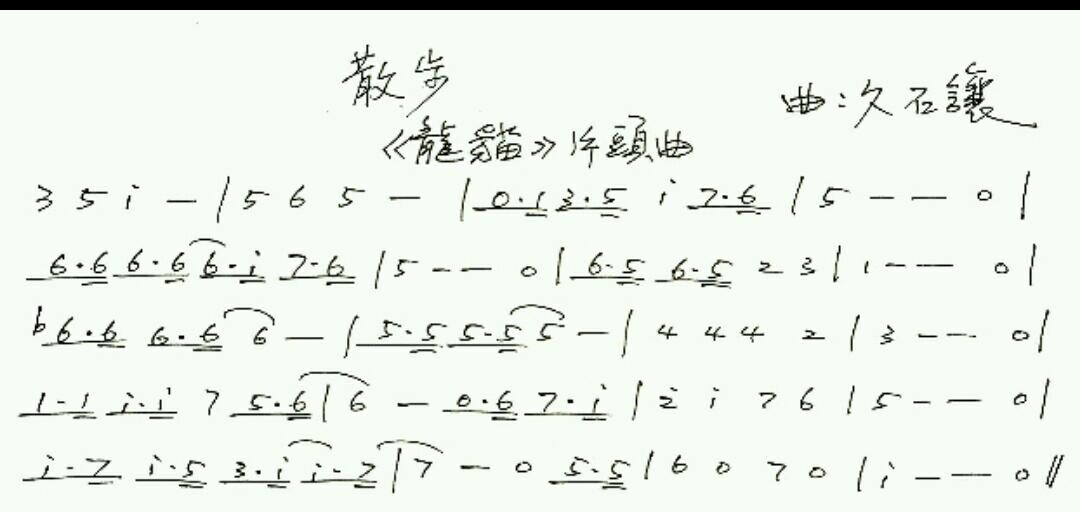 散步
曲:久石讓
《龍貓》片頭曲
3 5 i — | 5 6 5 — | 0·1 3·5 i 7·6 | 5 — — 0 |
6·6 6·6 6·i 7·6 | 5 — — 0 | 6·5 6·5 2 3 | 1 — — 0 |
b6·6 6·6 6 — | 5·5 5·5 5 — | 4 4 4 2 | 3 — — 0 |
1·1 i·i 7 5·6 | 6 — 0·6 7·i | 2̇ i 7 6 | 5 — — 0 |
i·7 i·5 3·i i·7 | 7 — 0 5·5 | 6 0 7 0 | i — — 0 ‖